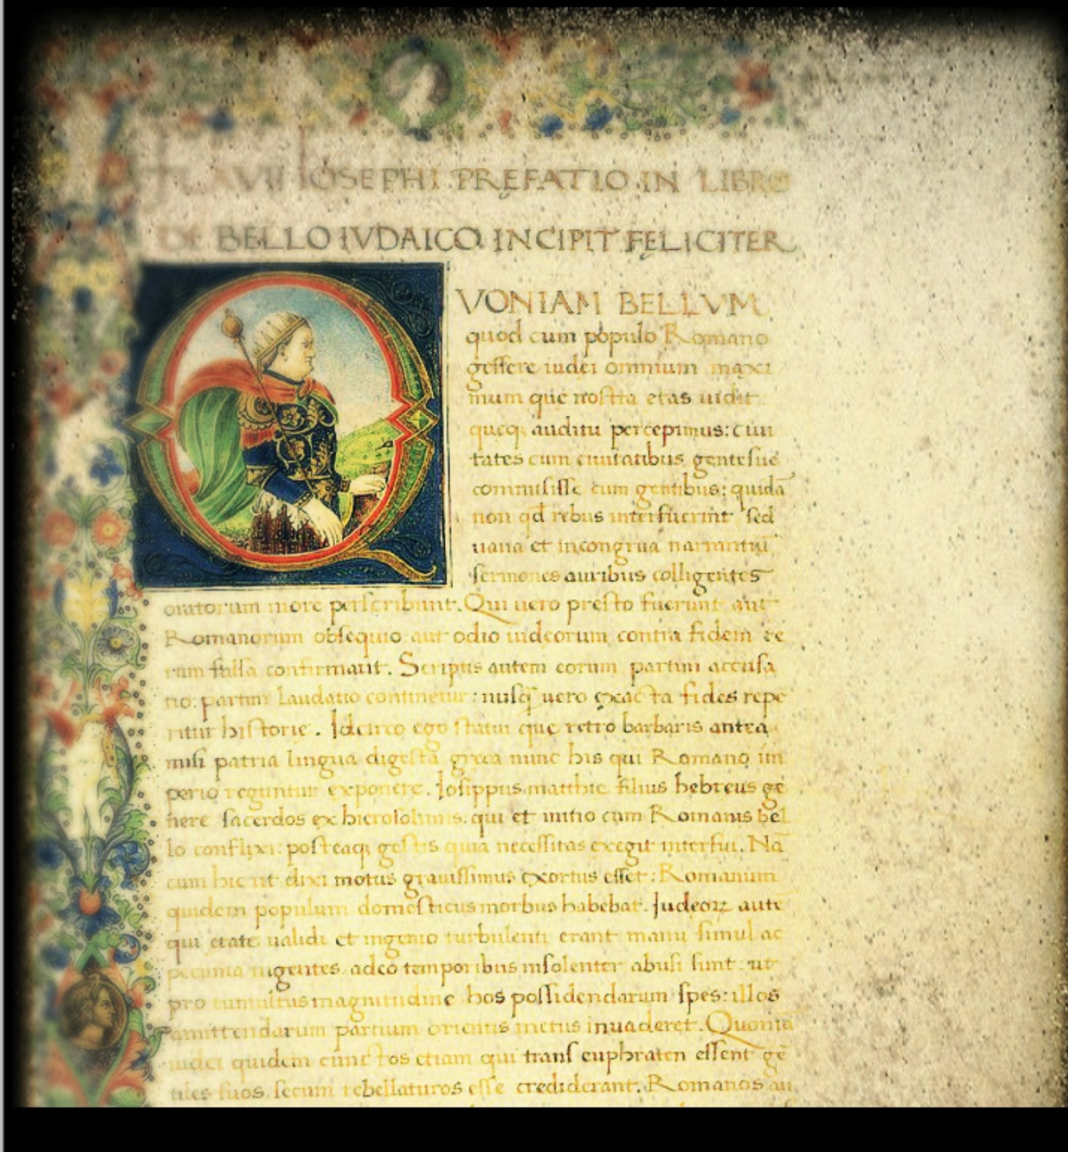 FLAVII IOSEPHI PREFATIO IN LIBRO
DE BELLO IVDAICO INCIPIT FELICITER
QVONIAM BELLVM
quod cum populo Romano
gessere iudei omnium maxi
mum que nostra etas uidit
queq auditu percepimus: ciui
tates cum ciuitatibus gentesue
commisisse cum gentibus: quidā
non qd rebus interfuerint sed
uana et incongrua narrantiū
sermones auribus colligentes
oratorum more perscribunt. Qui uero presto fuerunt aut
Romanorum obsequio aut odio iudeorum contra fidem re
rum falsa confirmant. Scriptis autem eorum partim accusa
tio: partim laudatio continetur: nusq̄ uero exacta fides repe
ritur historie. Idcirco ego statui que retro barbaris antea
misi patria lingua digesta greca nunc his qui Romano im
perio reguntur exponere. Iosippus matthie filius hebreus ge
nere sacerdos ex hierosolimis: qui et initio cum Romanis bel
lo conflixi: posteaq; gestis quia necessitas exegit interfui. Nā
cum hic ut dixi motus grauissimus exortus esset: Romanum
quidem populum domesticus morbus habebat. Iudeoꝝ autē
qui etate ualidi et ingenio turbulenti erant manu simul ac
pecunia uigentes adeo temporibus insolenter abusi sunt: ut
pro tumultus magnitudine hos possidendarum spes: illos
amittendarum partium orientis metus inuaderet. Quoniā
iudei quidem cunctos etiam qui trans euphraten essent gē
tiles suos secum rebellaturos esse crediderant. Romanos au